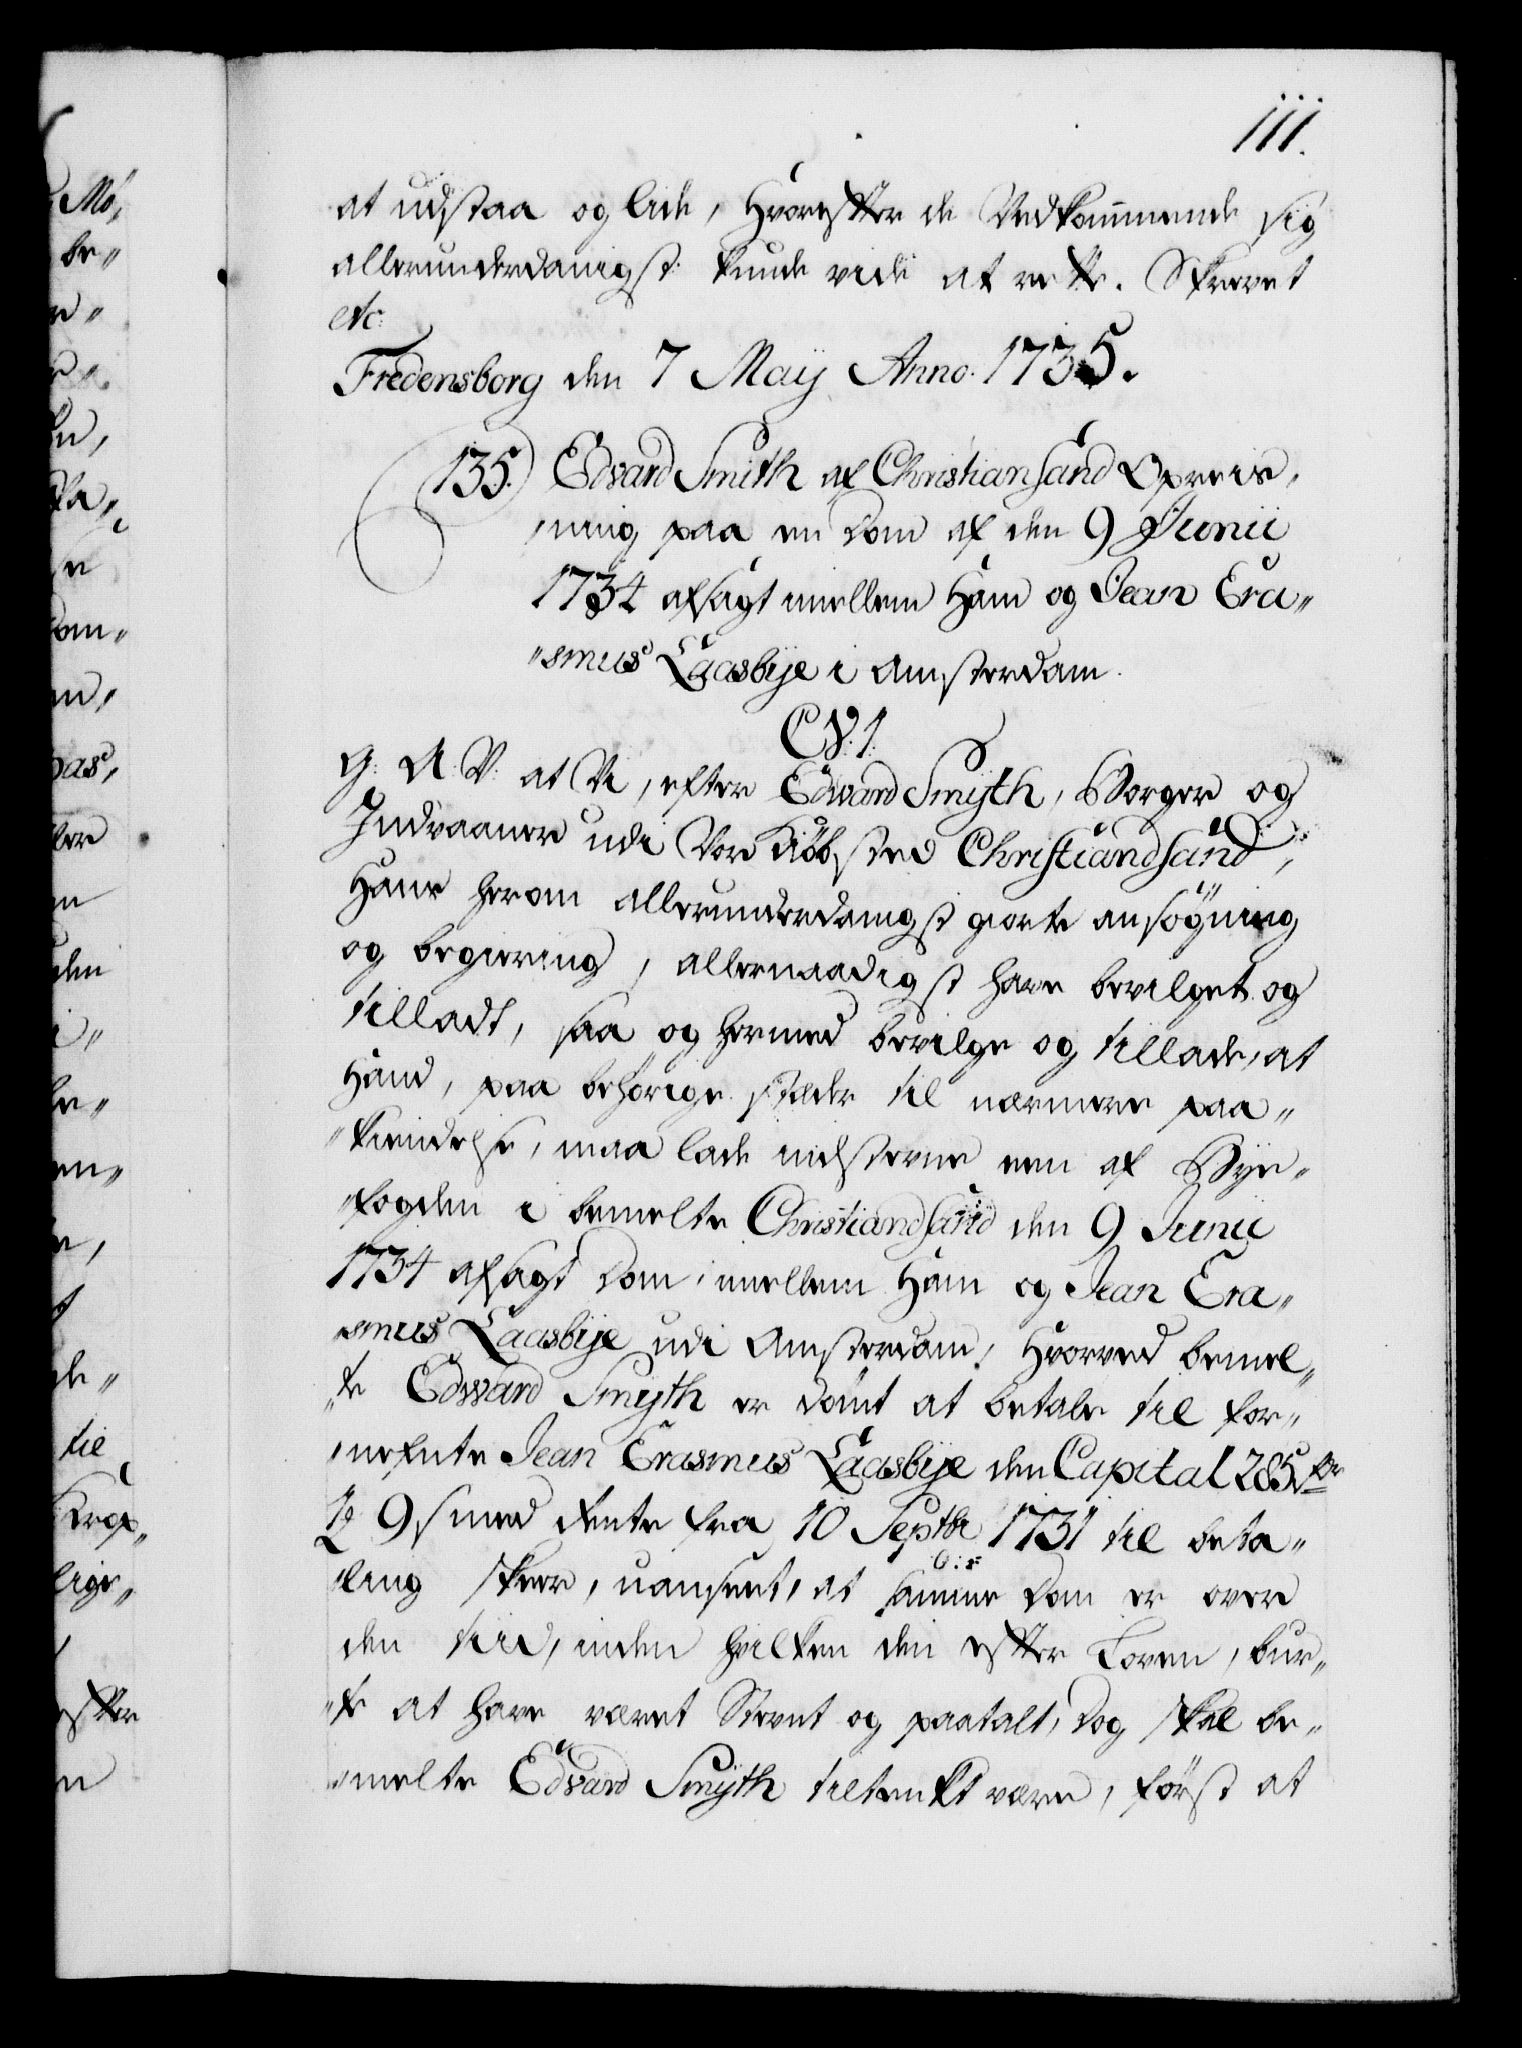 111.
at udstaa og lide, Hvorefter de Vedkommende sig
allerunderdanigst kunde vide at rette. Skrevet
etc:
Fredensborg den 7 Maÿ Anno. 1735.
135. Edvard Smith af Christiansand Opreis,
,ning paa en Dom af den 9 Junii
1734 afsagt imellem Ham og Jean Era„
„smus Laasbÿe i Amsterdam.
C. V. 1.
G: A: V: at Vi, efter Edvard Smÿth, Borger og
Indvaaner udi Vor Kiöbsted Christiandsand,
Hans herom allerunderdanigst giorte ansögning
og begiering, allernaadigst have bevilget og
tilladt, saa og hermed bevilge og tillade, at
Hand, paa behörige stæder til nærmere paa„
„kiendelse, maa lade indstevne een af Bÿe„
„fogden i bemelte Christiandsand den 9 Junii
1734 afsagt Dom, imellem Ham og Jean Era„
„smus Laasbÿe udi Amsterdam, Hvorved bemel„
„te Edward Smÿth er dömt at betale til for„
„nefnte Jean Erasmus Laasbÿe den Capital 285
9 s med Rente fra 10 Septbr 1731 til beta„
„ling skeer, uanseet, at samme Dom er over
den tiid, inden hvilken den efter Loven, bur„
„te at have været Stevnt og paatalt, Dog skal be„
„melte Edvard Smÿth tiltenkt være, först at
Mö,
be„
til